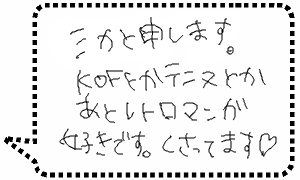 ミカと申します。
KOFとかテニヌとか
あとレトロマンガ
好きです。くさってます♡